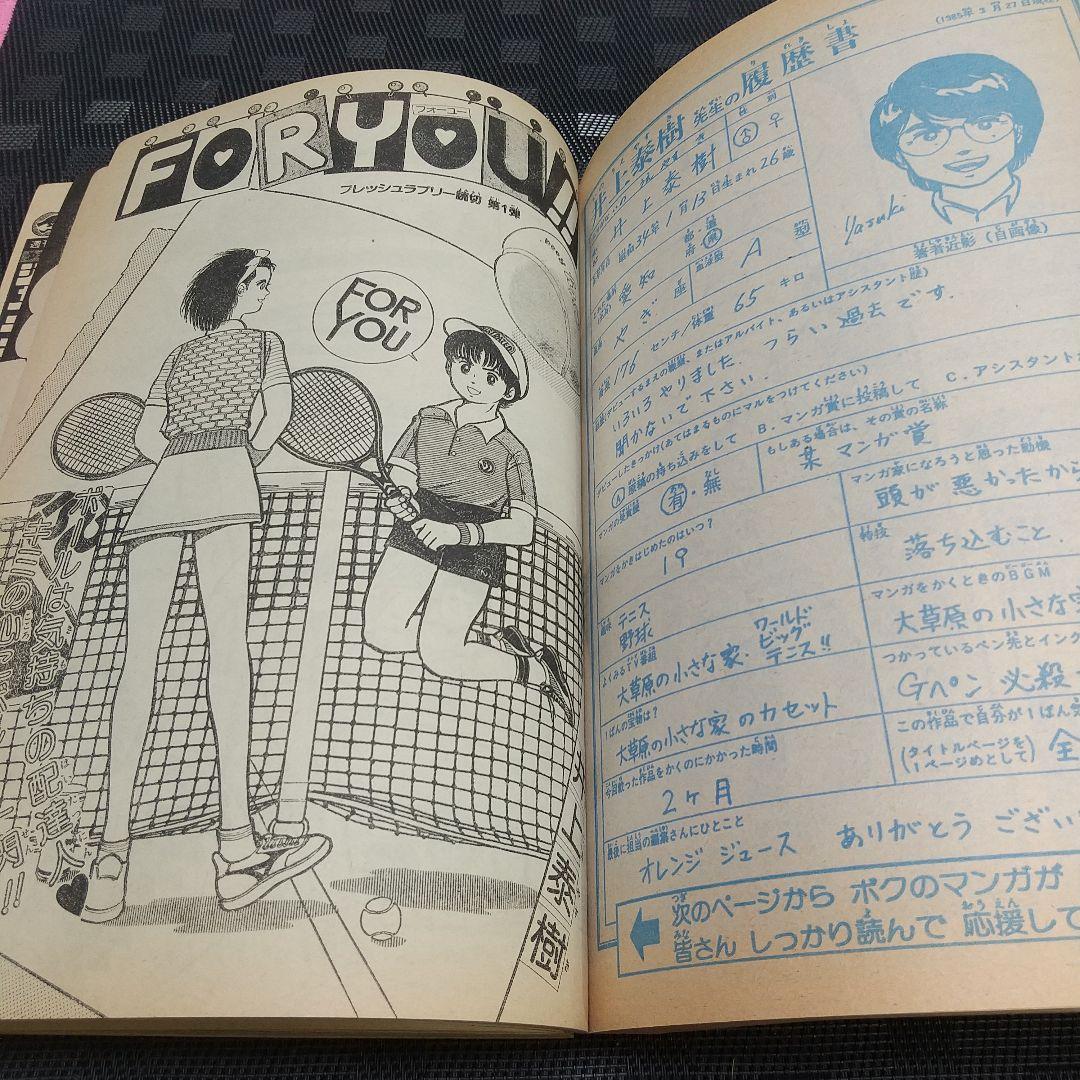 FOR YOU!!
フォーユー
フレッシュラブリー読切 第1弾
FOR
YOU
ボールは気持ちの配達人♥
キミの
泰樹
(1985年3月27日現在)
井上泰樹先生の履歴書
井上泰樹
性別
♂ ♀
昭和34年1月13日生まれ 26歳
愛知
都道府県
血液型 A型
やぎ座
身長176センチ/体重65キロ
職歴(デビューするまえの職業、またはアルバイト、あるいはアシスタント歴)
いろいろやりました。つらい過去です.
聞かないで下さい.
デビューしたきっかけ(あてはまるものにマルをつけてください)
A 原稿の持ち込みをして B.マンガ賞に投稿して C.アシスタント
マンガの受賞歴
有・無
もしある場合は、その賞の名称
某マンガ賞
マンガをかきはじめたのはいつ?
19
マンガ家になろうと思った動機
頭が悪かったから
趣味 テニス
野球
特技
落ち込むこと.
よくみるTV番組
大草原の小さな家・ワールドビッグテニス!!
マンガをかくときのBGM
大草原の小さな
1ばんの宝物は?
大草原の小さな家のカセット
つかっているペン先とインク
Gペン 必殺
今回載った作品をかくのにかかった時間
2ヶ月
この作品で自分が1ばん
(タイトルページを
1ページめとして)
全
最後に担当の編集さんにひとこと
オレンジジュース ありがとうござい
Yasuki
著者近影(自画像)
次のページから ボクのマンガが
皆さん しっかり読んで 応援して